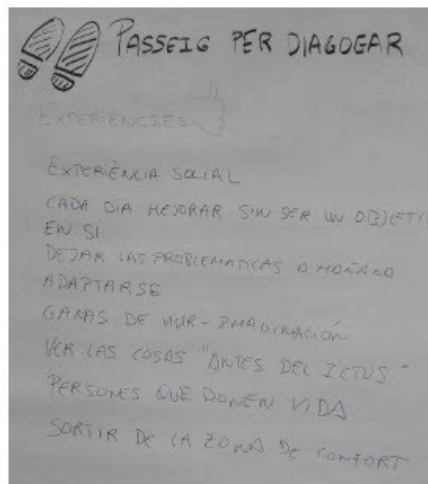 PASSEIG PER DIAGOGAR
EXPERIÈNCIES
EXPERIÈNCIA SOCIAL
CADA DIA MEJORAR SIN SER UN OBJETI
EN SI
DEJAR LAS PROBLEMATICAS A MAÑANA
ADAPTARSE
GANAS DE VIVIR-IMAGINACIÓN
VER LAS COSAS "ANTES DEL ICTUS"
PERSONES QUE DONEN VIDA
SORTIR DE LA ZONA DE CONFORT